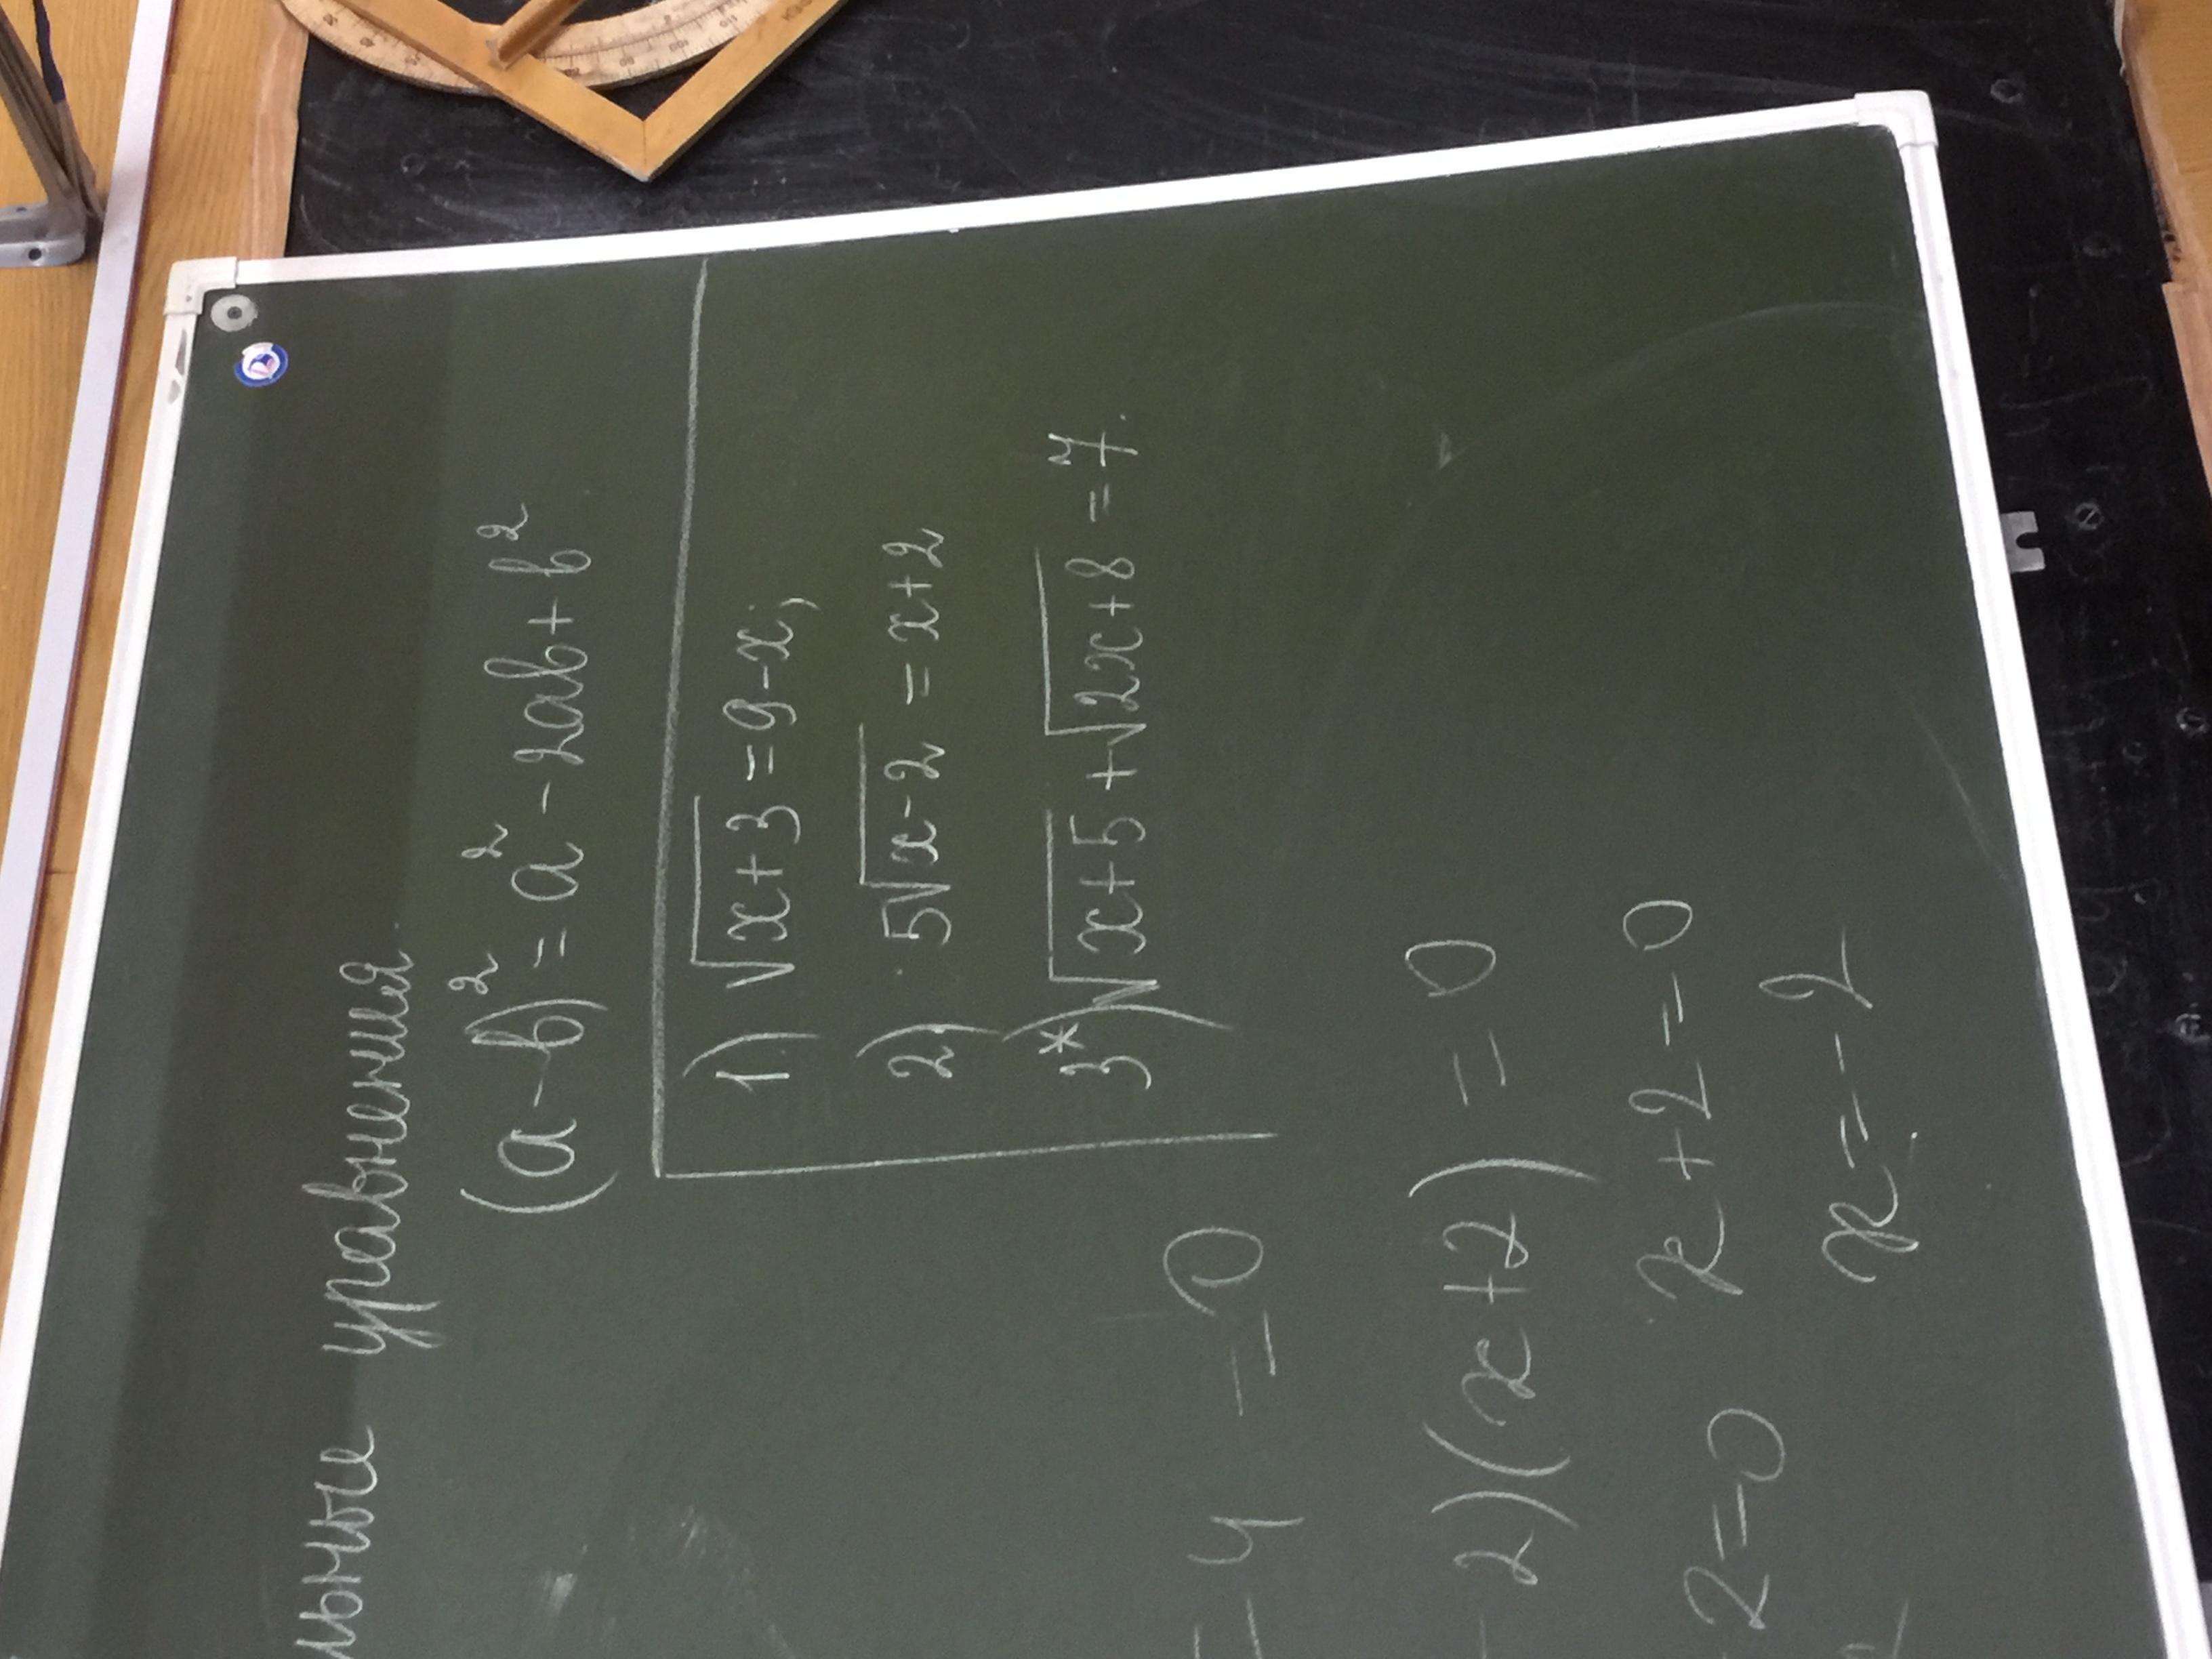 уравнения
(a-b)² = a² - 2ab + b²
1) √x+3 = 9-x;
2) 5√x-2 = x+2
3*) √x+5 + √2x+8 = 7.
4 = 0
2)(x+2) = 0
2=0 x+2=0
x=-2